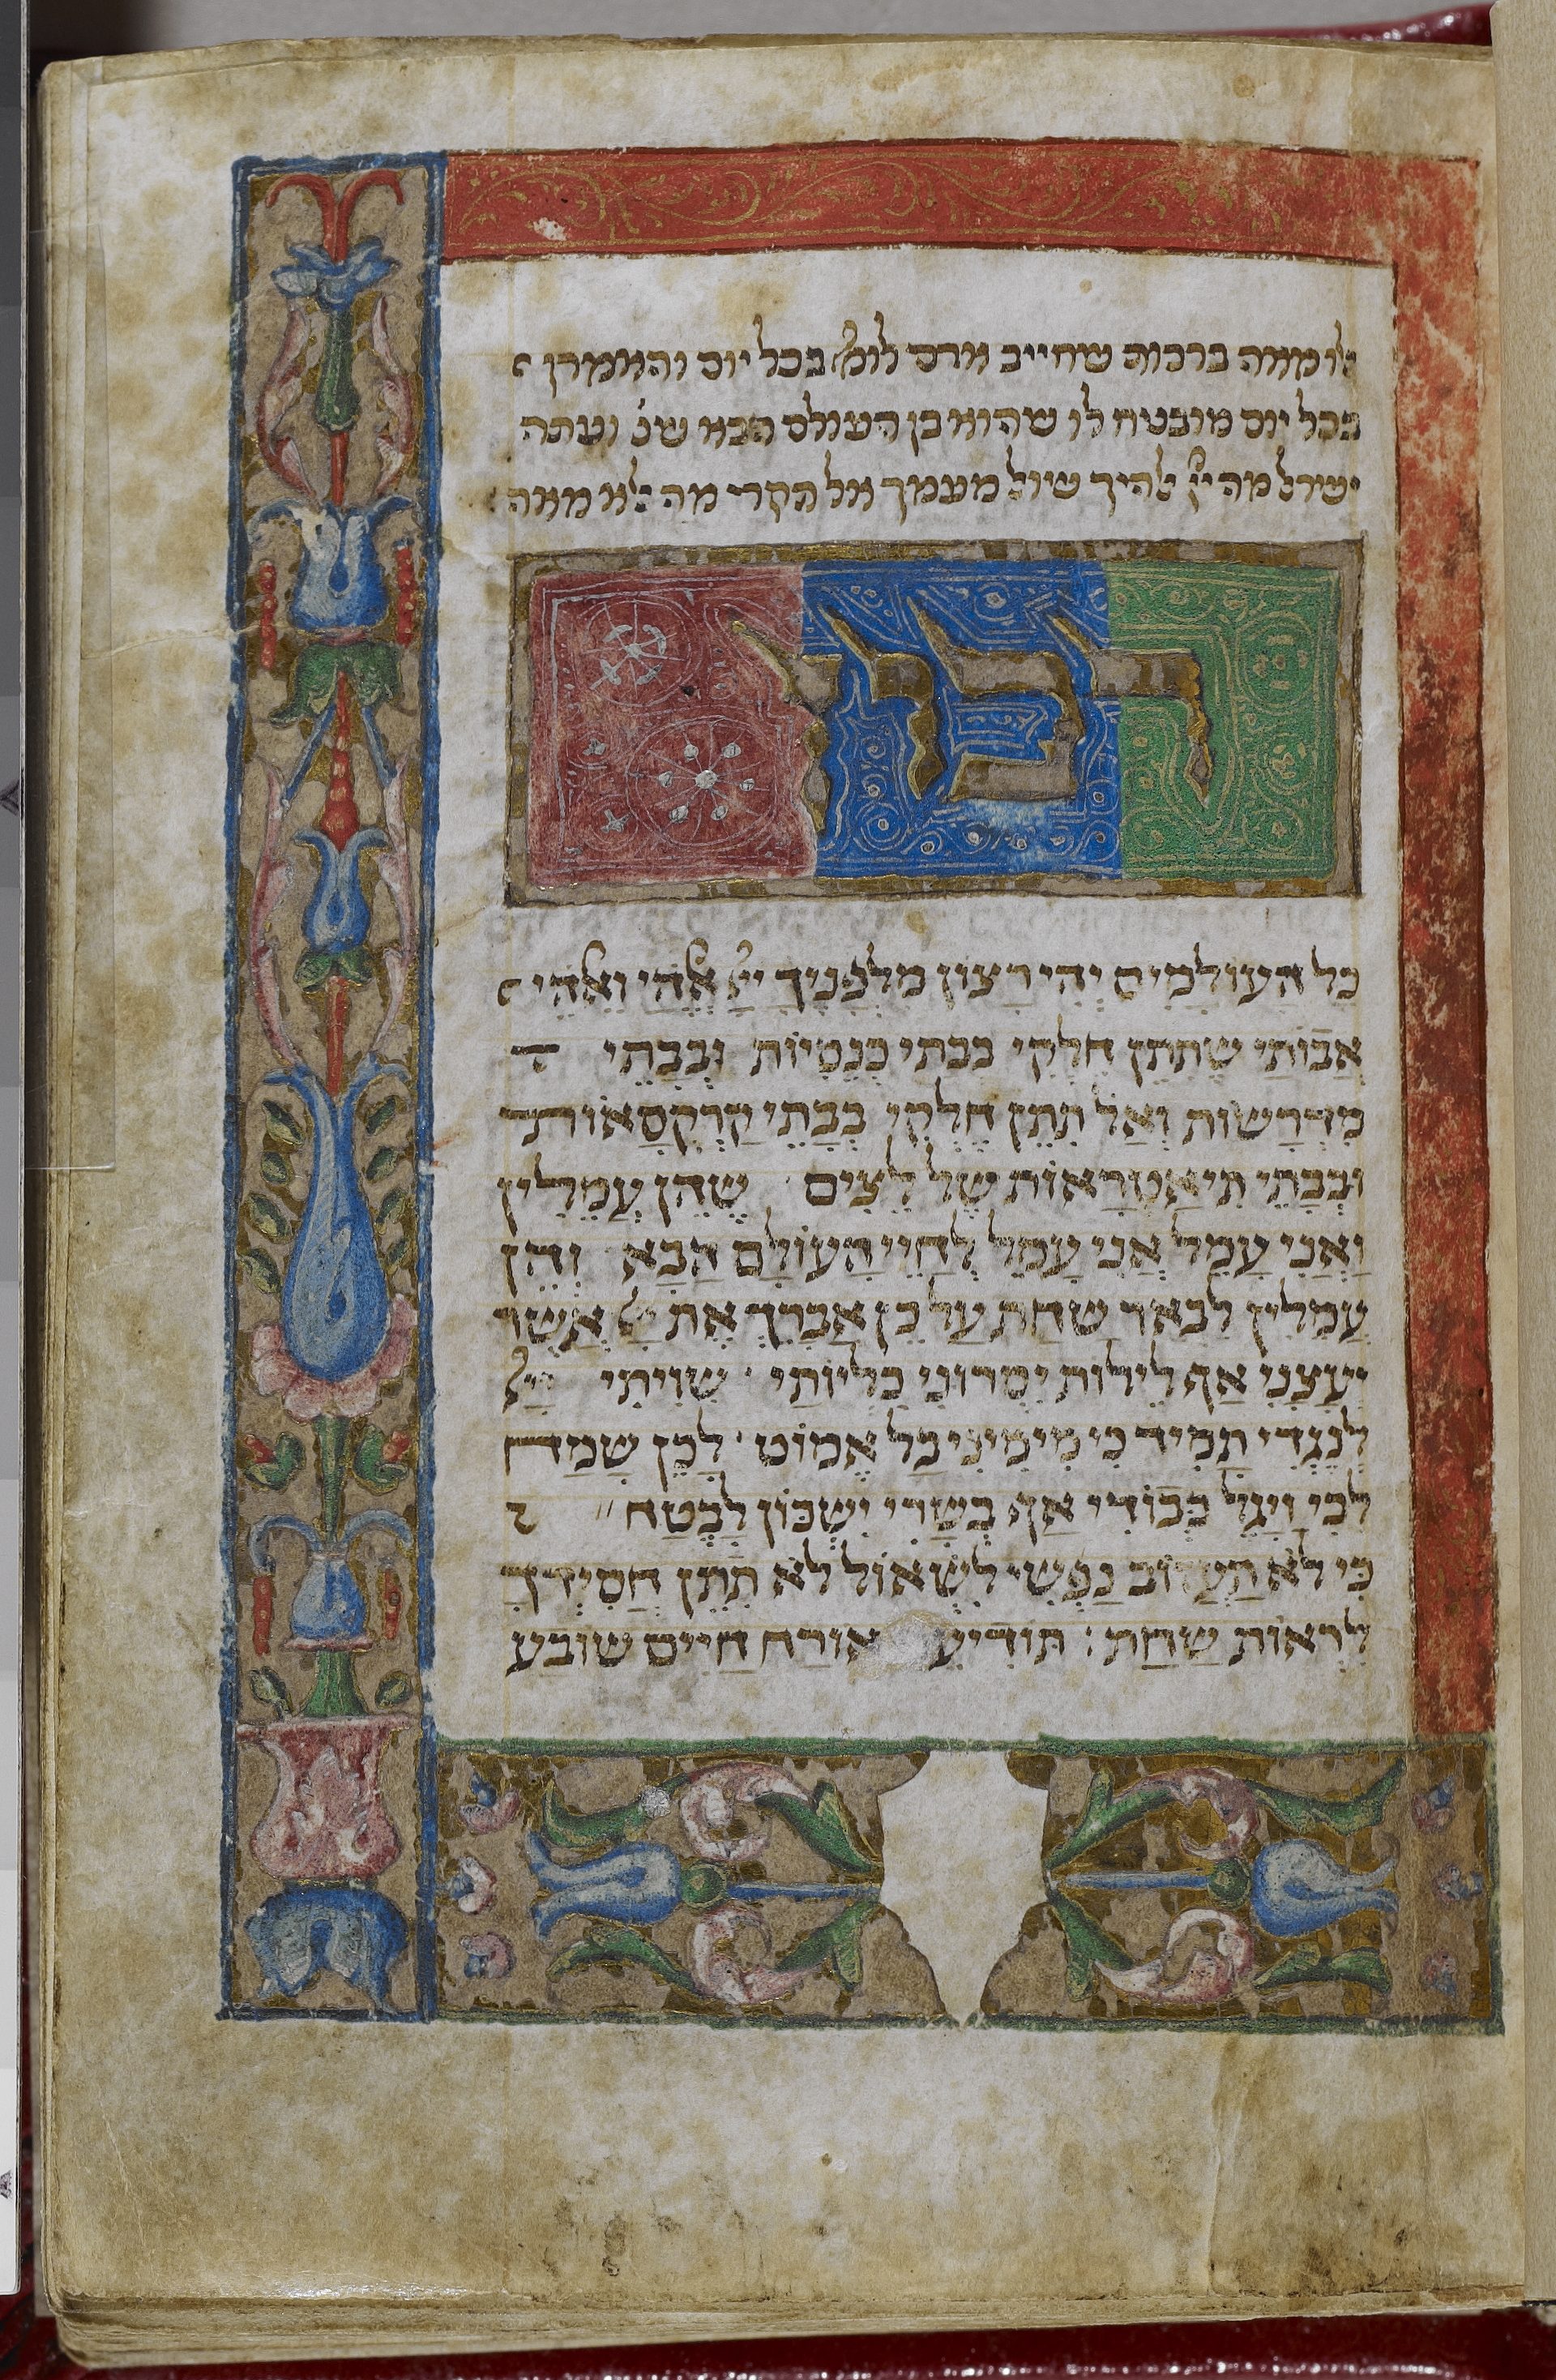 ומאה ברכות שחייב אדם לומ' בכל יום והאומרן
בכל יום מובטח לו שהוא בן העולם הבא שנ' ועתה
ישר' מה יי' אלהיך שואל מעמך אל תקרי מה אלא מאה
רבון
כָּל הָעוֹלָמִים יְהִי רָצוֹן מִלְּפָנֶיךָ יְיָ אֱלֹהַי וֵאלֹהֵי
אֲבוֹתַי שֶׁתִּתֵּן חֶלְקִי בְּבָתֵּי כְנֵסִיּוֹת וּבְבָתֵּי
מִדְרָשׁוֹת וְאַל תִּתֵּן חֶלְקִי בְּבָתֵּי קַרְקְסָאוֹת
וּבְבָתֵּי תִיאַטְרָאוֹת שֶׁל לֵצִים שֶׁהֵן עֲמֵלִין
וַאֲנִי עָמֵל אֲנִי עָמֵל לְחַיֵּי הָעוֹלָם הַבָּא וְהֵן
עֲמֵלִין לִבְאֵר שַׁחַת עַל כֵּן אֲבָרֵךְ אֶת יְיָ אֲשֶׁר
יְעָצָנִי אַף לֵילוֹת יִסְּרוּנִי כִלְיוֹתָי · שִׁוִּיתִי יְיָ
לְנֶגְדִּי תָמִיד כִּי מִימִינִי בַּל אֶמּוֹט · לָכֵן שָׂמַח
לִבִּי וַיָּגֶל כְּבוֹדִי אַף בְּשָׂרִי יִשְׁכּוֹן לָבֶטַח
כִּי לֹא תַעֲזוֹב נַפְשִׁי לִשְׁאוֹל לֹא תִתֵּן חֲסִידְךָ
לִרְאוֹת שָׁחַת : תּוֹדִיעֵ אורַח חַיִּים שובַע